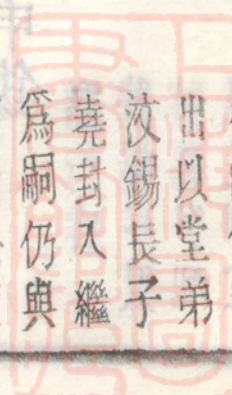 出以堂弟
汝錫長子
堯封入繼
爲嗣仍與